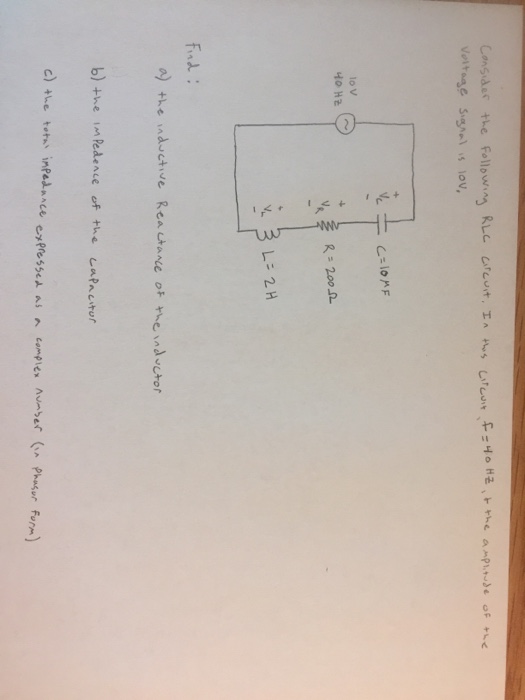 Consider the following RLC circuit. In this circuit, f = 40 HZ, + the amplitude of the
voltage signal is 10V.
+
Vc
-
C = 10MF
10V
40 HZ
~
+
VR
-
R = 200Ω
+
VL
-
L = 2H
Find :
a) the inductive Reactance of the inductor
b) the impedence of the capacitor
c) the total impedance expressed as a complex number (in phasor form)